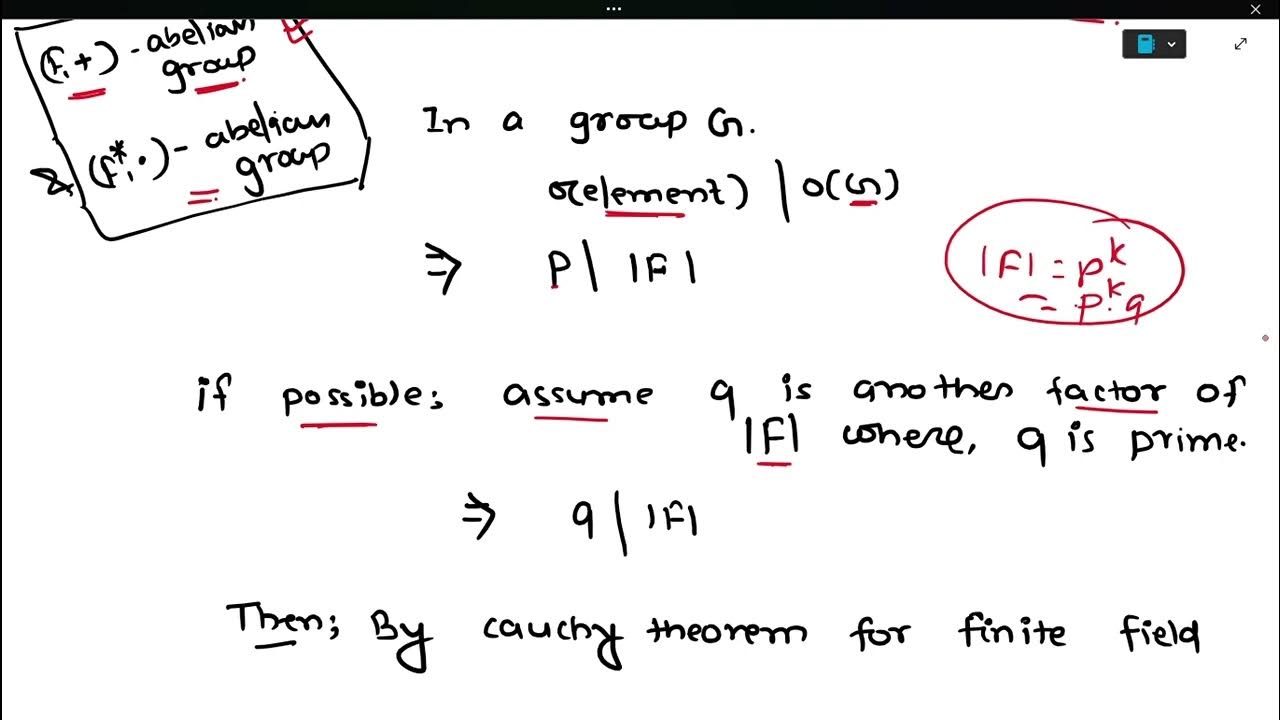 (F, +) - abelian
group
& (F*, ·) - abelian
group
In a group G.
o(element) | o(G)
⇒ P | |F|
|F| = p^k
= p^k · q
if possible; assume q is another factor of
|F| where, q is prime.
⇒ q | |F|
Then; By cauchy theorem for finite field